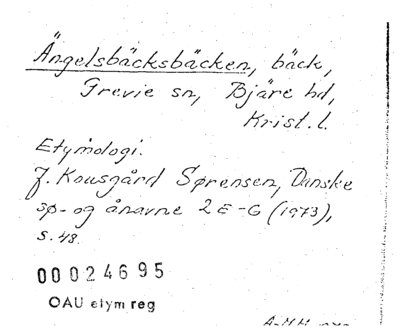 Ängelsbäcksbäcken, bäck,
Grevie sn, Bjäre hd,
Krist. l.
Etymologi.
J. Kousgård Sørensen, Danske
sø- og ånavne 2 E-G (1973),
s. 48.
00024695
OAU etym reg